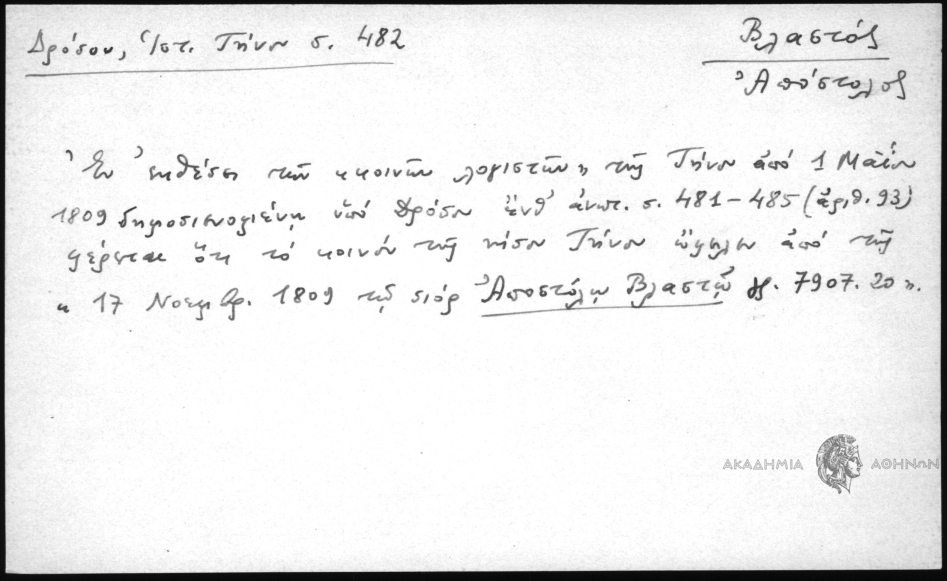 Δρόσου, Ἱστ. Τήνου σ. 482
Βλαστός
Ἀπόστολος
Ἐν ἐκθέσει τῶν «κοινῶν λογιστῶν» τῆς Τήνου ἀπό 1 Μαΐου
1809 δημοσιευομένῃ ὑπό Δρόσου ἔνθ' ἀνωτ. σ. 481-485 (ἀριθ. 93)
φέρεται ὅτι τό κοινόν τῆς νήσου Τήνου ὤφειλεν ἀπό τῆς
« 17 Νοεμβρ. 1809 τῷ σιόρ Ἀποστόλῳ Βλαστῷ γρ. 7907.20 ».
ΑΚΑΔΗΜΙΑ ΑΘΗΝΩΝ